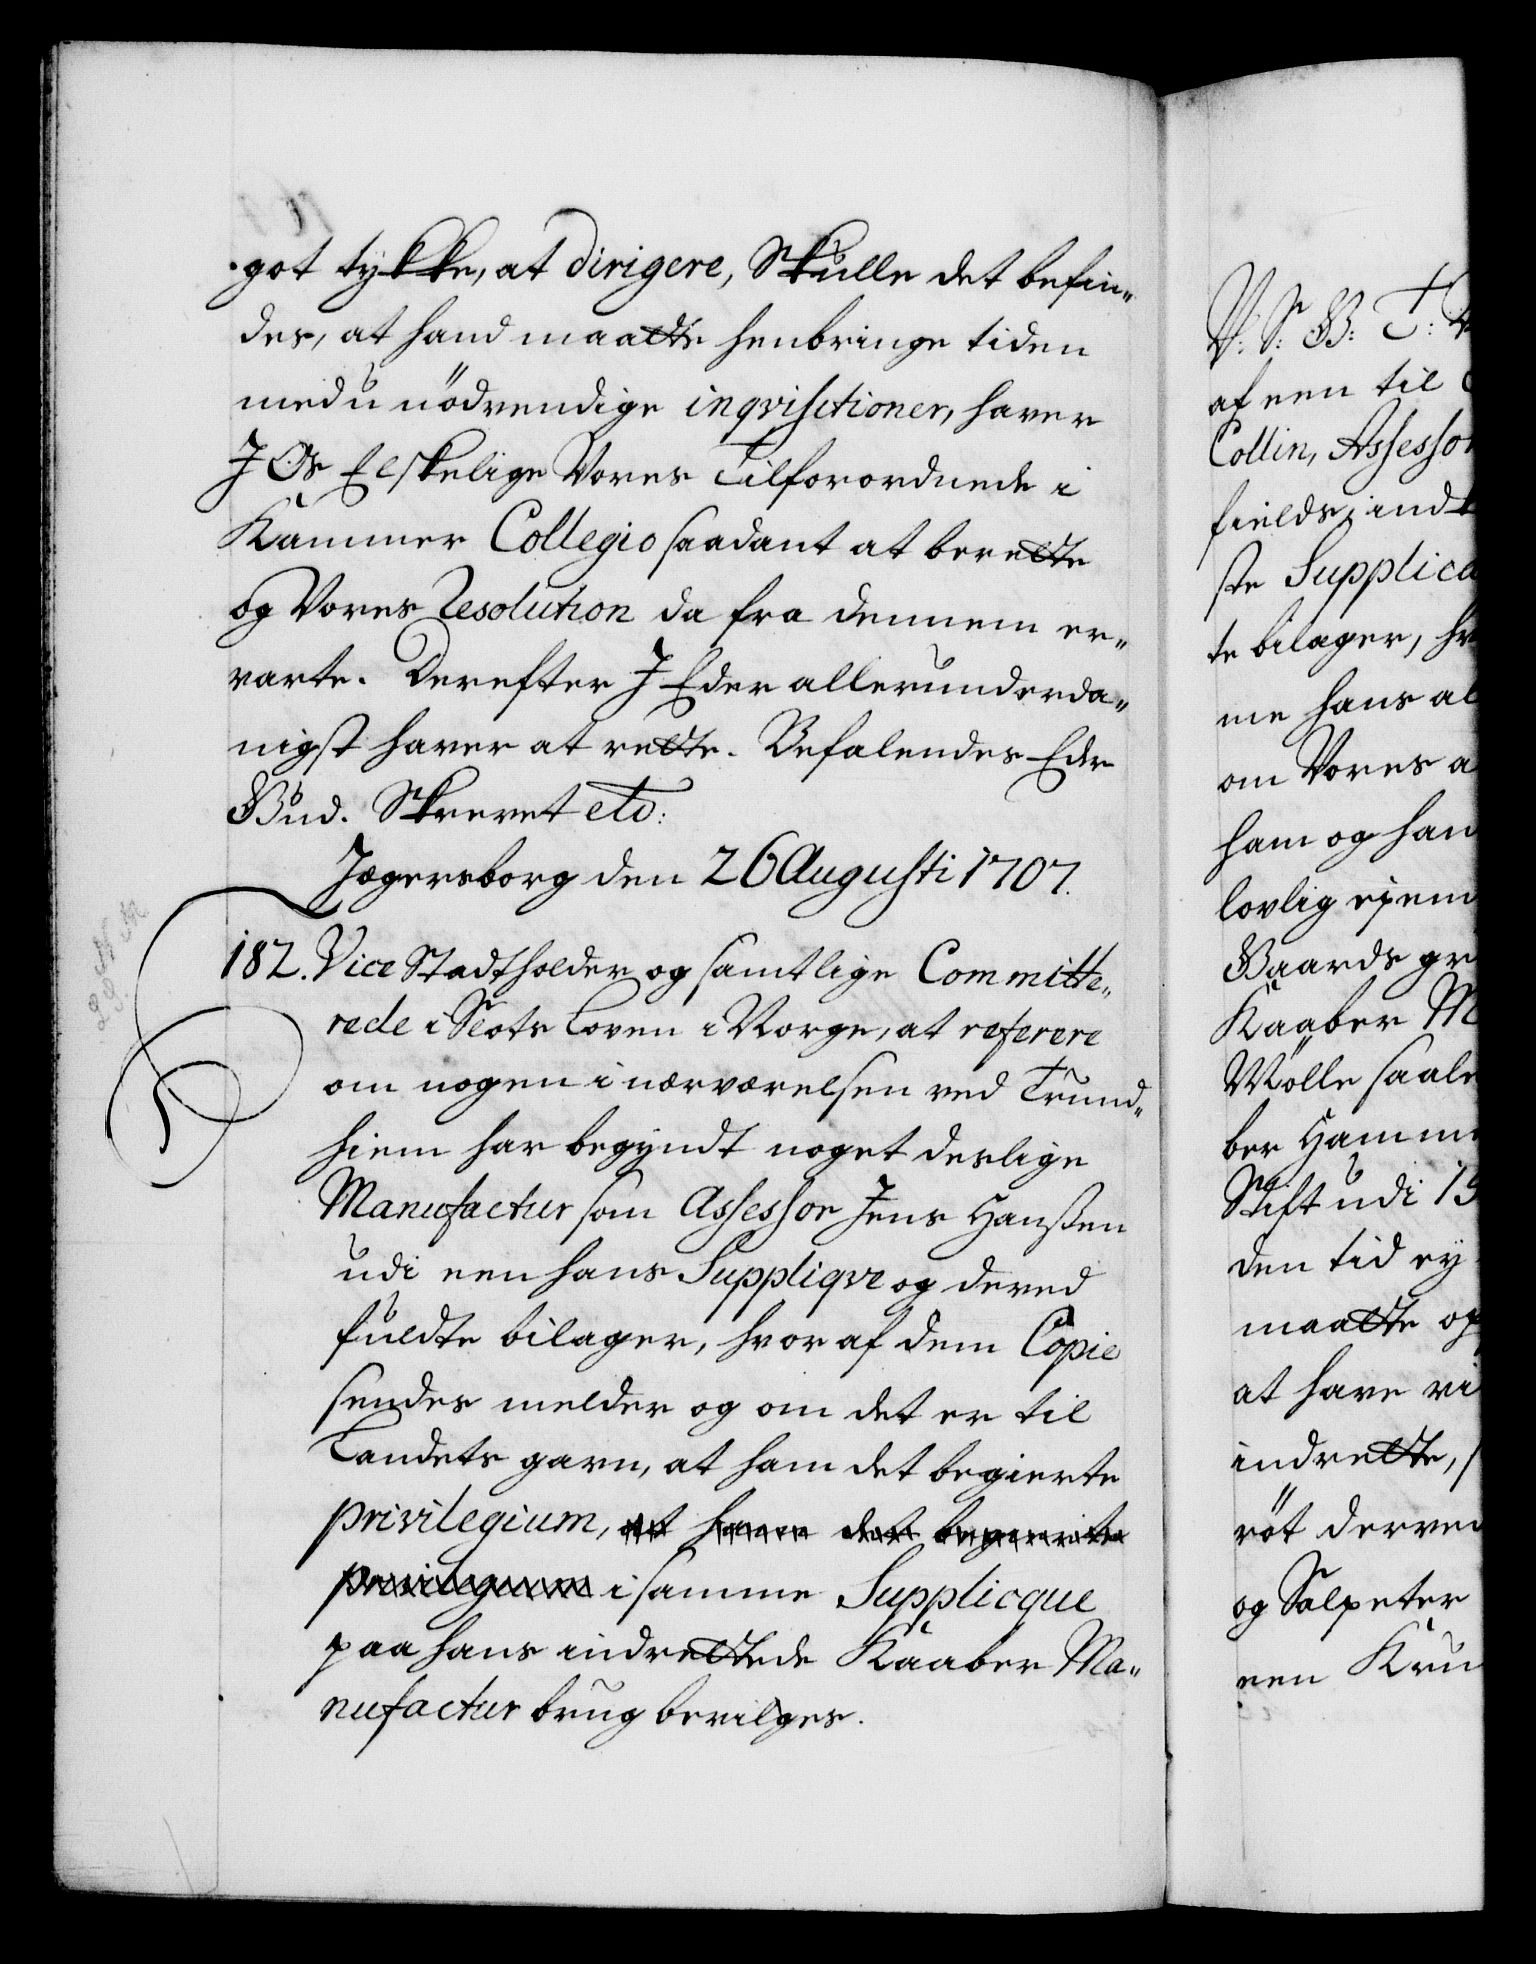 got tykke, at dirigere, Skulle det befin„
des, at hand maatte henbringe tiden
med unödvendige inqvisitioner, haver
J Os Elskelige Vores Tilforordnede i
Kammer Collegio saadant at berette
og Vores Resolution da fra dennem er„
varte. Derefter J Eder allerunderda„
nigst haver at rette. Befalendes Eder
Gud. Skrevet etc:
Jægersborg den 26 Augusti 1707.
182. Vice Stadtholder og samtlige Committe„
rede i Slots Loven i Norge, at referere
om nogen i nærværelsen ved Trund„
hiem har begyndt noget deslige
Manufactur som Assessor Jens Hanßen
udi een hans Suppliqve og derved
fuldte bilager, hvor af dem Copie
sendes melder og om det er til
Landets gavn, at ham det begierte
privilegium, at ham det begierte
privilegium i samme Supplicque
paa hans indrettede Kaaber Ma„
nufactur brug bevilges.
V: S: G: T:
af een til
Collin, Assessor
fields, indt
ste Supplica
te bilager, hv
me hans al
om Vores a
ham og han
lovlig ejem
Gaards gr
Kaaber M
Mölle saale
ber Hamme
Stift udi 19
den tid ey
maatte op
at have vi
indrette, s
röt derved
og Salpeter
een Kru